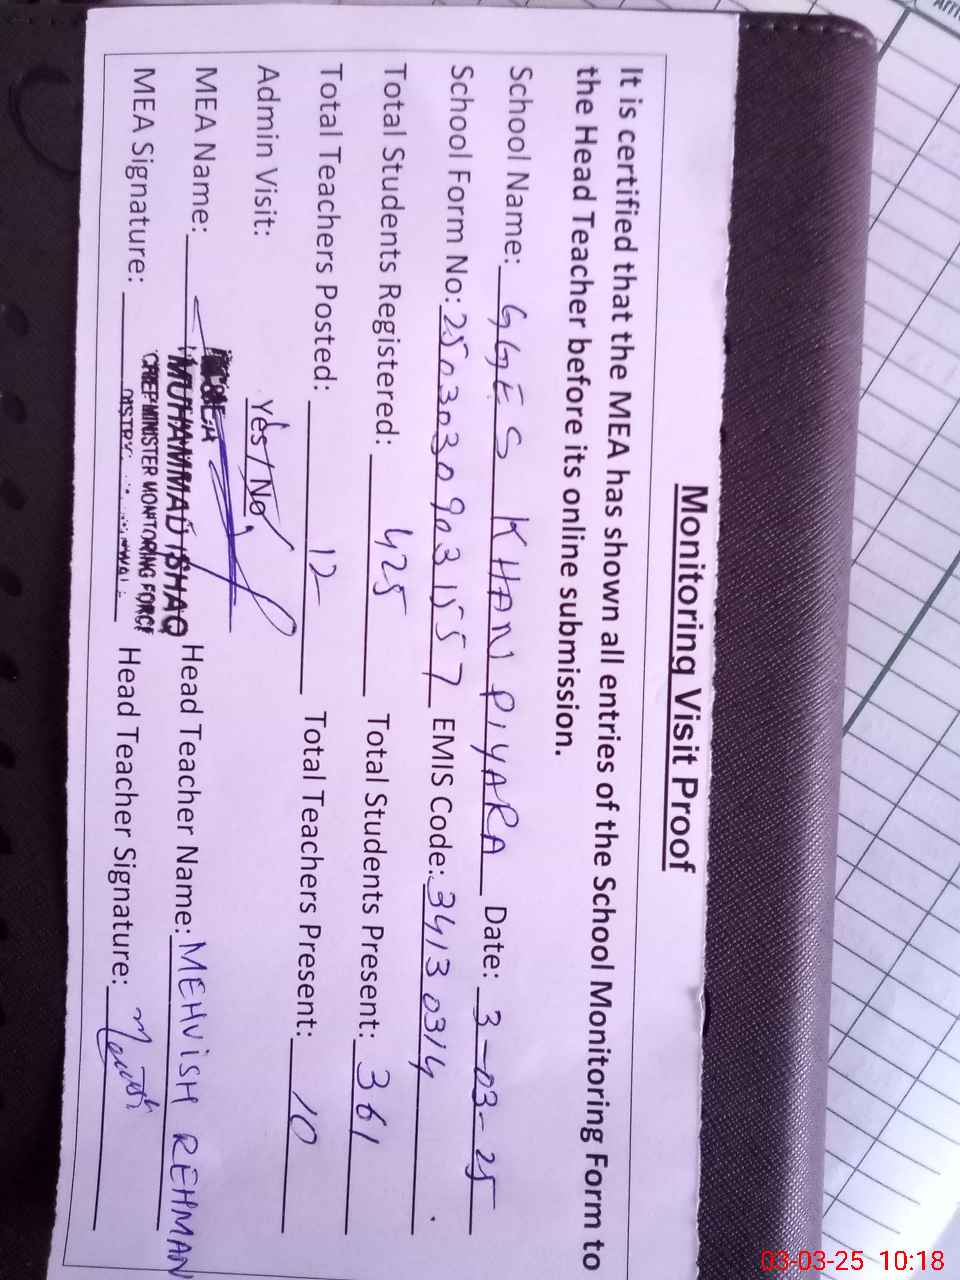 Monitoring Visit Proof
It is certified that the MEA has shown all entries of the School Monitoring Form to
the Head Teacher before its online submission.
School Name: GGES KHAN PIYARA Date: 3-03-25
School Form No: 25030309031557 EMIS Code: 34130314
Total Students Registered: 425 Total Students Present: 361
Total Teachers Posted: 12 Total Teachers Present: 10
Admin Visit: Yes / No
MEA Name: MUHAMMAD ISHAQ Head Teacher Name: MEHVISH REHMAN
CHIEF MINISTER MONITORING FORCE
MEA Signature: Head Teacher Signature:
03-03-25 10:18